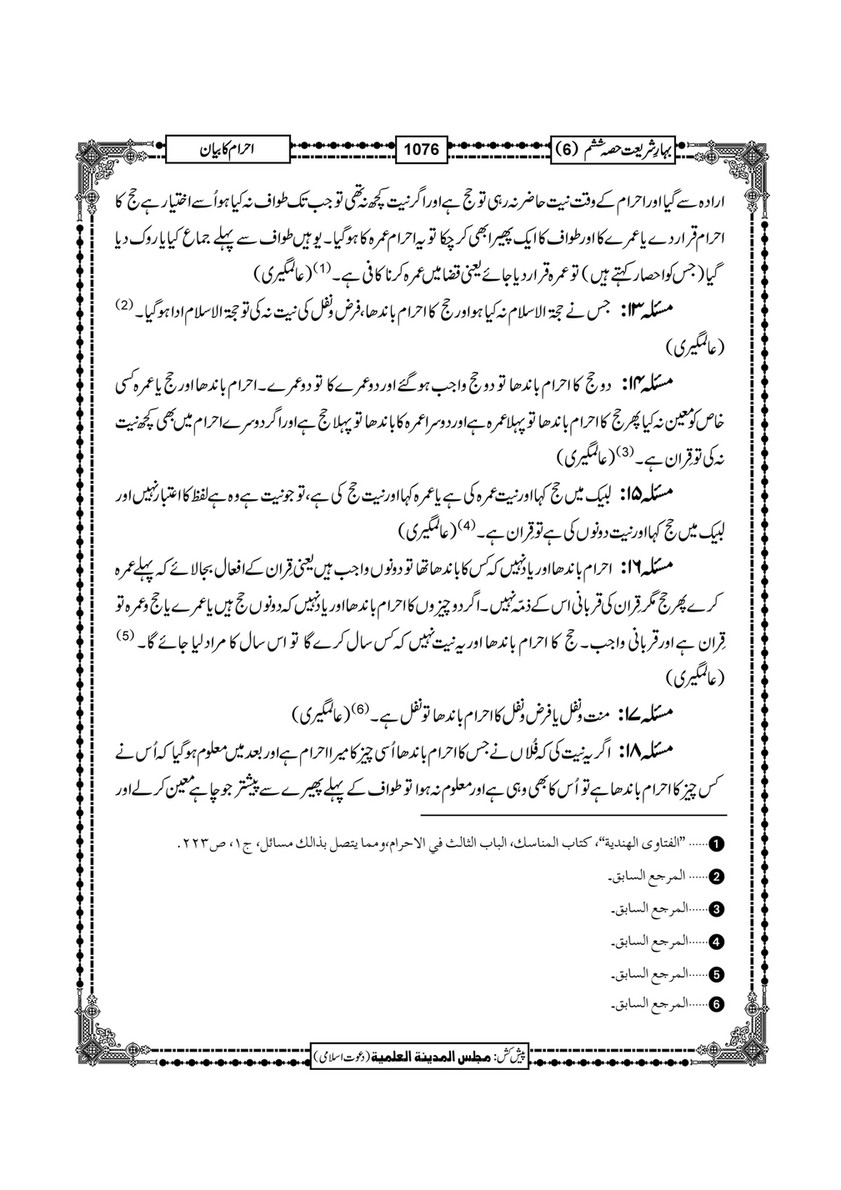 بہارِ شریعت حصہ ششم (6)
1076
احرام کا بیان
ارادہ سے گیا اور احرام کے وقت نیت حاضر نہ رہی تو حج ہے اور اگر نیت کچھ نہ تھی تو جب تک طواف نہ کیا ہو اُسے اختیار ہے حج کا
احرام قرار دے یا عمرے کا اور طواف کا ایک پھیرا بھی کر چکا تو یہ احرام عمرہ کا ہوگیا۔ یو ہیں طواف سے پہلے جماع کیا یا روک دیا
گیا (جس کو احصار کہتے ہیں) تو عمرہ قرار دیا جائے یعنی قضا میں عمرہ کرنا کافی ہے۔(1) (عالمگیری)
مسئلہ ۱۳: جس نے حجۃ الاسلام نہ کیا ہو اور حج کا احرام باندھا، فرض و نفل کی نیت نہ کی تو حجۃ الاسلام ادا ہوگیا۔(2)
(عالمگیری)
مسئلہ ۱۴: دو حج کا احرام باندھا تو دو حج واجب ہوگئے اور دو عمرے کا تو دو عمرے۔ احرام باندھا اور حج یا عمرہ کسی
خاص کو معین نہ کیا پھر حج کا احرام باندھا تو پہلا عمرہ ہے اور دوسرا عمرہ کا باندھا تو پہلا حج ہے اور اگر دوسرے احرام میں بھی کچھ نیت
نہ کی تو قِران ہے۔(3) (عالمگیری)
مسئلہ ۱۵: لبیک میں حج کہا اور نیت عمرہ کی ہے یا عمرہ کہا اور نیت حج کی ہے، تو جو نیت ہے وہ ہے لفظ کا اعتبار نہیں اور
لبیک میں حج کہا اور نیت دونوں کی ہے تو قِران ہے۔(4) (عالمگیری)
مسئلہ ۱۶: احرام باندھا اور یاد نہیں کہ کس کا باندھا تھا تو دونوں واجب ہیں یعنی قِران کے افعال بجا لائے کہ پہلے عمرہ
کرے پھر حج مگر قِران کی قربانی اس کے ذمّہ نہیں۔ اگر دو چیزوں کا احرام باندھا اور یاد نہیں کہ دونوں حج ہیں یا عمرے یا حج و عمرہ تو
قِران ہے اور قربانی واجب۔ حج کا احرام باندھا اور یہ نیت نہیں کہ کس سال کرے گا تو اس سال کا مراد لیا جائے گا۔(5)
(عالمگیری)
مسئلہ ۱۷: منت و نفل یا فرض و نفل کا احرام باندھا تو نفل ہے۔(6) (عالمگیری)
مسئلہ ۱۸: اگر یہ نیت کی کہ فُلاں نے جس کا احرام باندھا اُسی چیز کا میرا احرام ہے اور بعد میں معلوم ہوگیا کہ اُس نے
کس چیز کا احرام باندھا ہے تو اُس کا بھی وہی ہے اور معلوم نہ ہوا تو طواف کے پہلے پھیرے سے پیشتر جو چاہے معین کرلے اور
1...... "الفتاوی الهندية"، كتاب المناسك، الباب الثالث في الاحرام، ومما يتصل بذالك مسائل، ج١، ص٢٢٣.
2...... المرجع السابق۔
3......المرجع السابق۔
4......المرجع السابق۔
5......المرجع السابق۔
6......المرجع السابق۔
پیش کش: مجلس المدینة العلمیة (دعوت اسلامی)